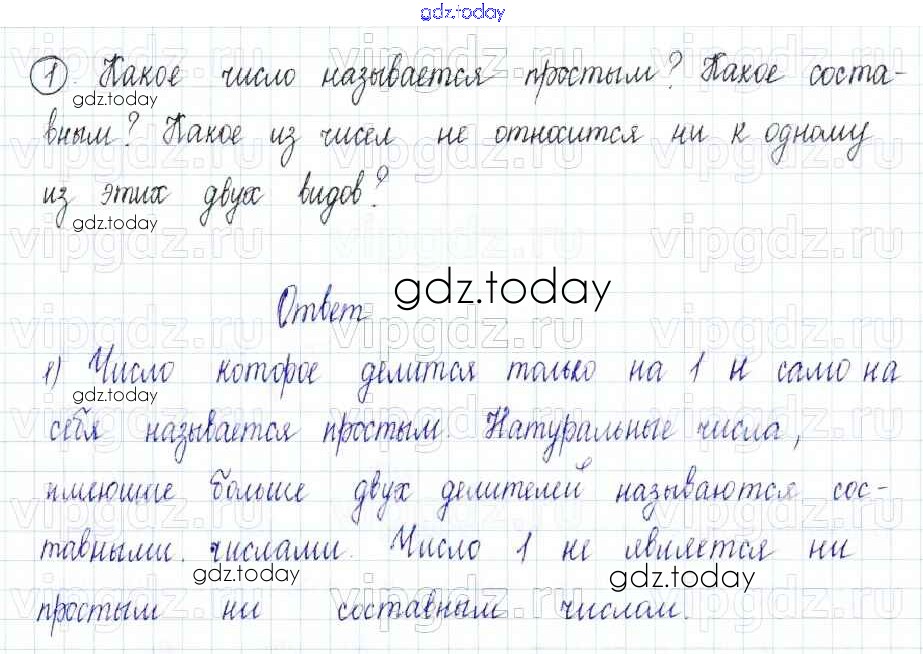 gdz.today
① Какое число называется простым? Какое соста-
gdz.today
вным? Какое из чисел не относится ни к одному
из этих двух видов?
gdz.today
Ответ gdz.today
1) Число которое делится только на 1 и само на
gdz.today
себя называется простым. Натуральные числа,
имеющие больше двух делителей называются сос-
тавными числами. Число 1 не является ни
gdz.today gdz.today
простым ни составным числом.